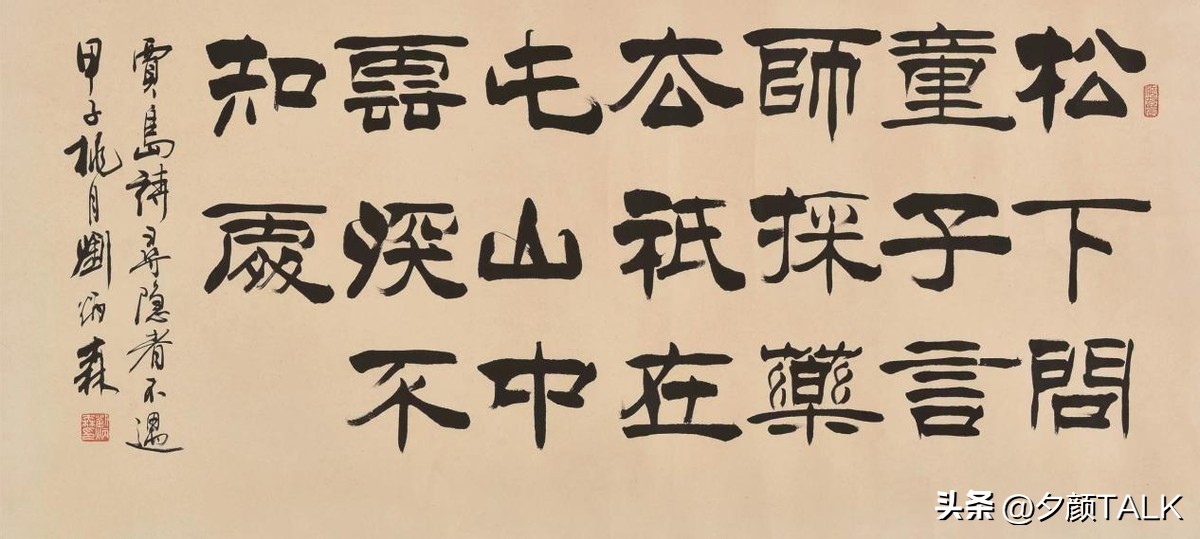 松下問
童子言
師採藥
去祇在
此山中
雲深不
知處
賈島詩尋隐者不遇
甲子桃月劉炳森
头条 @夕颜TALK